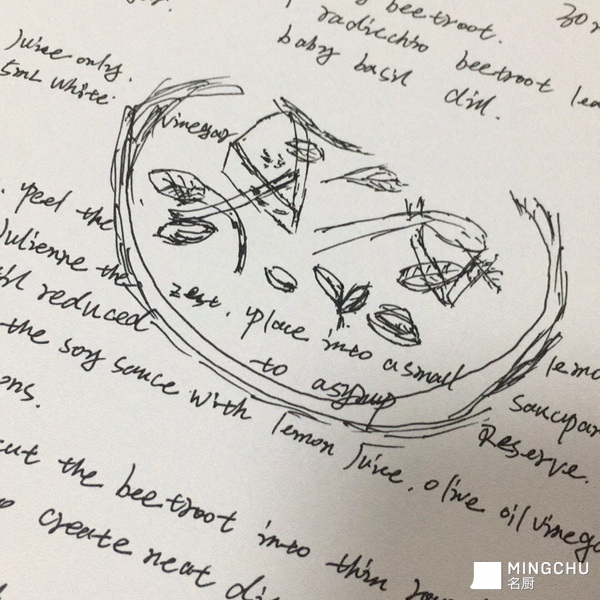 y beetroot.
radicchio beetroot lea
baby basil dill.
Juice only.
5mL white
vinegar
. peel the
Julienne the
zest. place into a small
reduced to asyrup
lemo
saucpan
Reserve.
the soy sauce with lemon Juice. olive oil vinega
ons.
cut the beetroot into thin
create neat di
MINGCHU
名厨